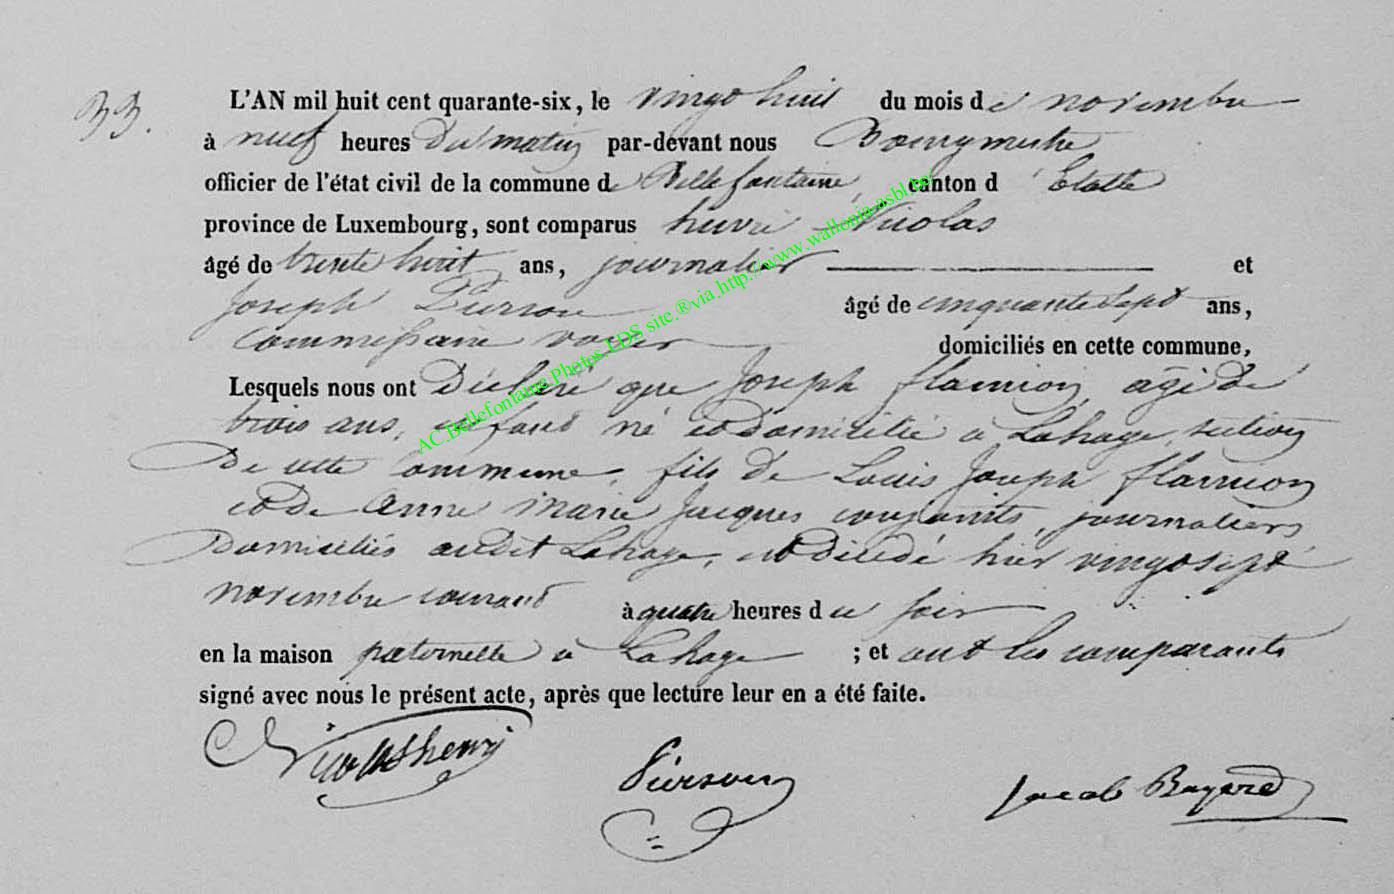 33.
L'AN mil huit cent quarante-six, le vingt huit du mois de novembre
à neuf heures du matin par-devant nous Bourgmestre
officier de l'état civil de la commune de Bellefontaine, canton d'Etalle
province de Luxembourg, sont comparus henri Nicolas
âgé de trente huit ans, journalier et
Joseph Pierson âgé de cinquante sept ans,
commissaire voyer domiciliés en cette commune,
Lesquels nous ont déclaré que Joseph flamion, agé de
trois ans, enfant né et domicilié à Lahage, section
de cette commune, fils de Louis Joseph flamion
et de anne marie Jacques conjoints, journaliers
domiciliés audit Lahage, est décédé hier vingt sept
novembre courant à quatre heures du soir
en la maison paternelle à Lahage ; et ont les comparants
signé avec nous le présent acte, après que lecture leur en a été faite.
Nicolas henri Pierson Jacob Bayard
AC.Bellefontaine.Photos.LDS site.®via.http://www.wallonia-asbl.be